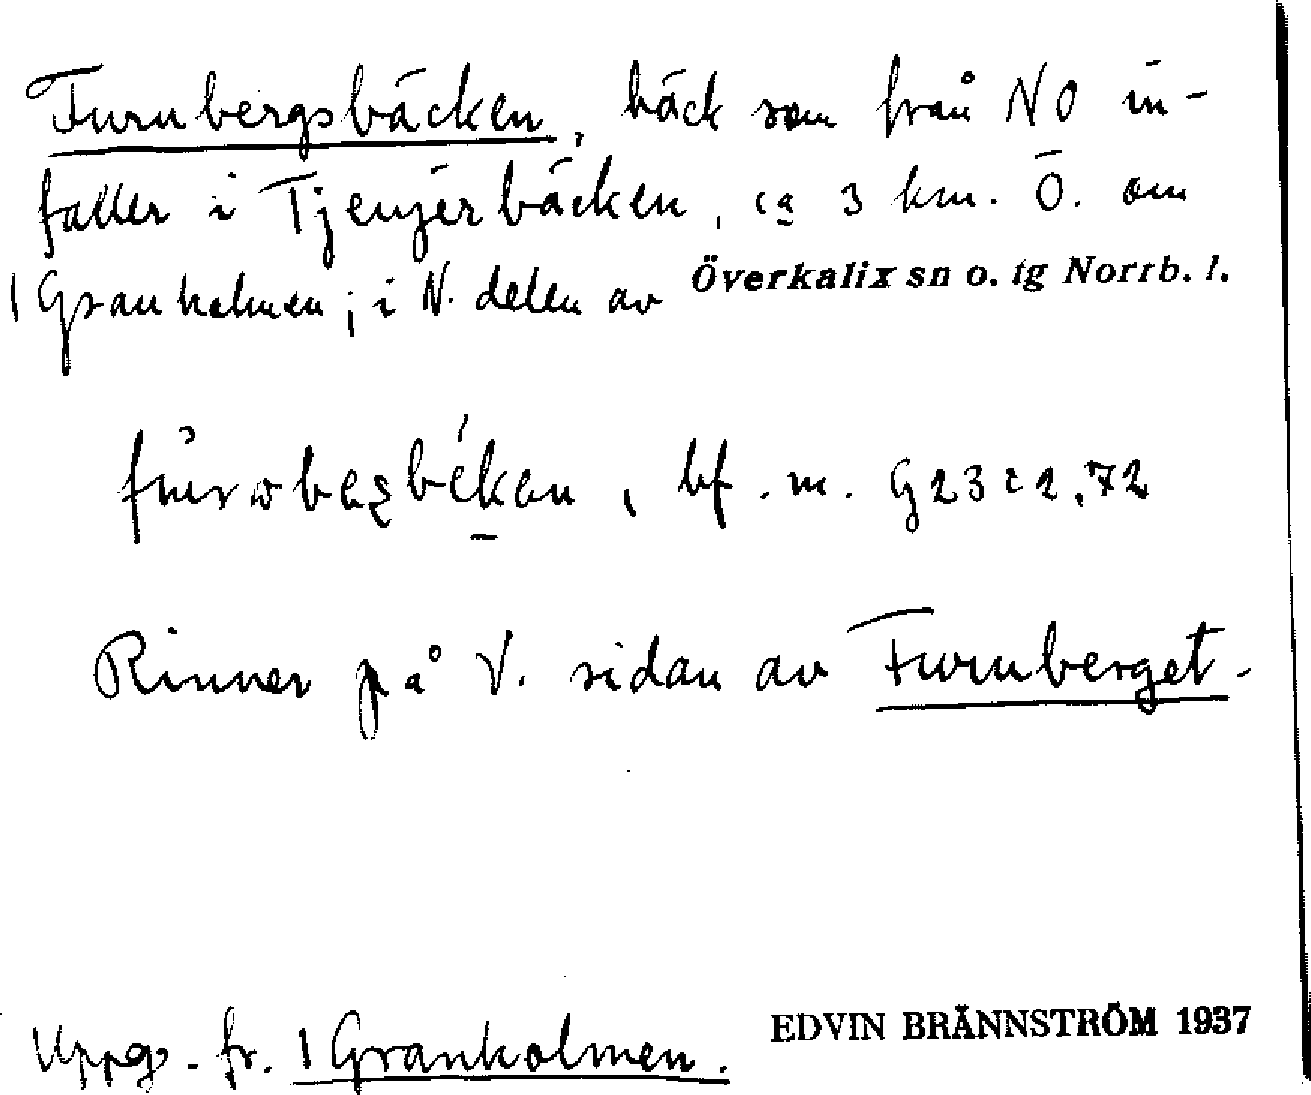 Furubergsbäcken, bäck som från NO in-
faller i Tjenjérbäcken, ca 3 km. Ö. om
1 Granholmen; i N. delen av Överkalix sn o. tg Norrb. l.
bf. m. G23 c 2,72
Rinner på V. sidan av Furuberget.
Uppg. fr. 1 Granholmen.
EDVIN BRÄNNSTRÖM 1937